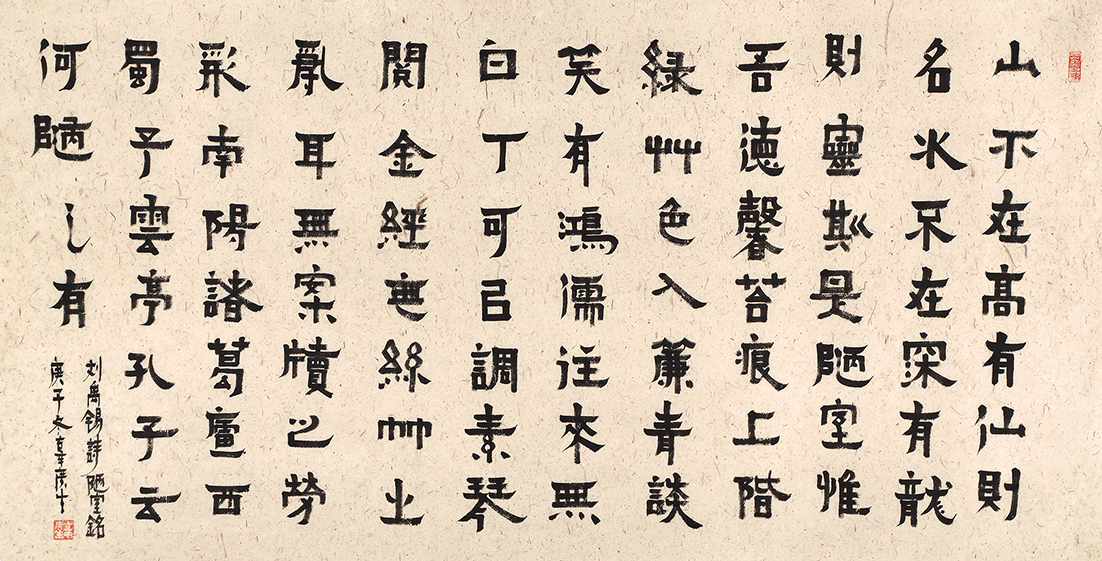 山不在高有仙則
名水不在深有龍
則靈斯是陋室惟
吾德馨苔痕上階
綠艸色入簾青談
笑有鴻儒往來無
白丁可以調素琴
閱金經無絲竹之
亂耳無案牘之勞
形南陽諸葛廬西
蜀子雲亭孔子云
何陋之有
刘禹錫詩陋室銘
庚子冬